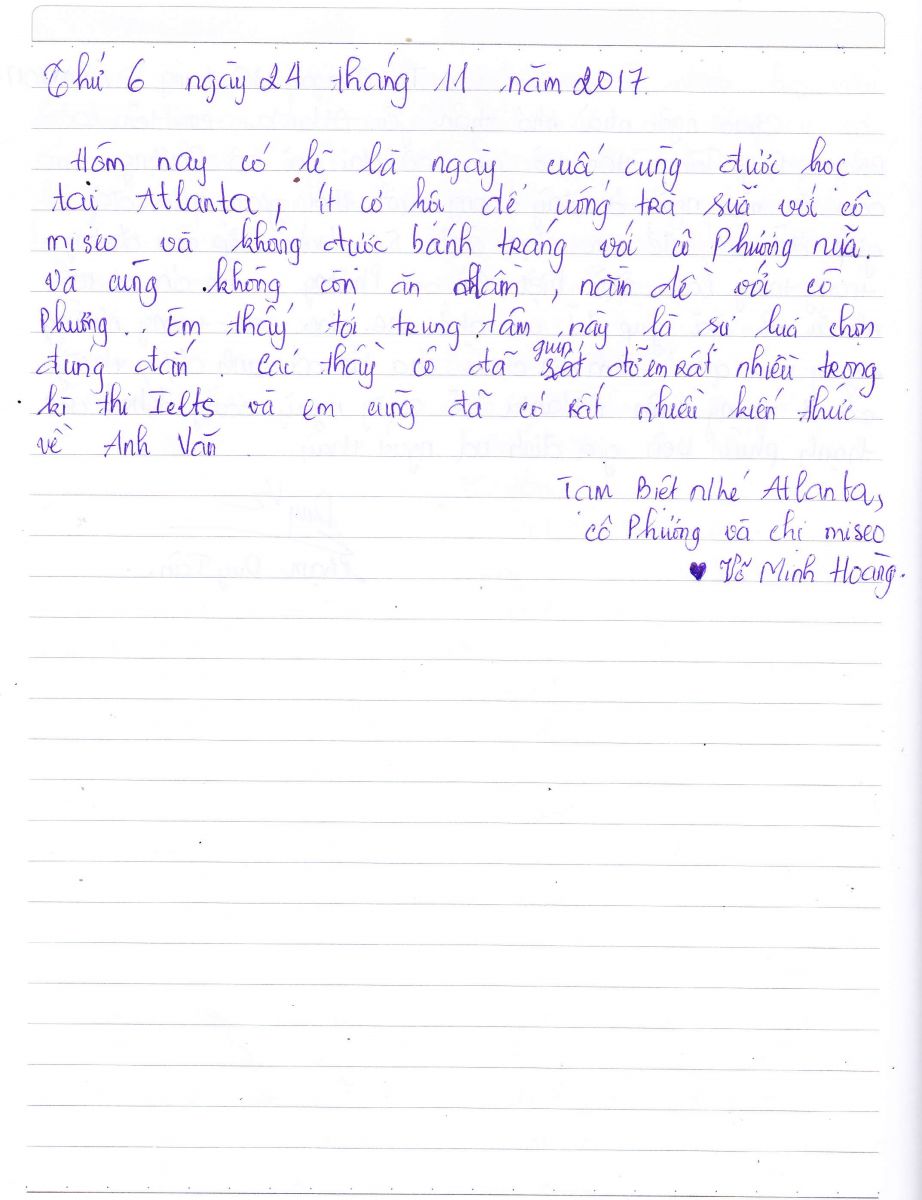 Thứ 6 ngày 24 tháng 11 năm 2017.
Hôm nay có lẽ là ngày cuối cùng được học
tại Atlanta, ít cơ hội để uống trà sữa với cô
miseo và không được bánh tráng với cô Phương nữa.
Và cũng không còn ăn nhâm, nằm dề với cô
Phương.. Em thấy tới trung tâm này là sự lựa chọn
đúng đắn. Các thầy cô đã giúp đỡ em rất nhiều trong
kì thi Ielts và em cũng đã có rất nhiều kiến thức
về Anh Văn
Tạm Biệt nhé Atlanta,
cô Phương và chị miseo
♥ Võ Minh Hoàng.